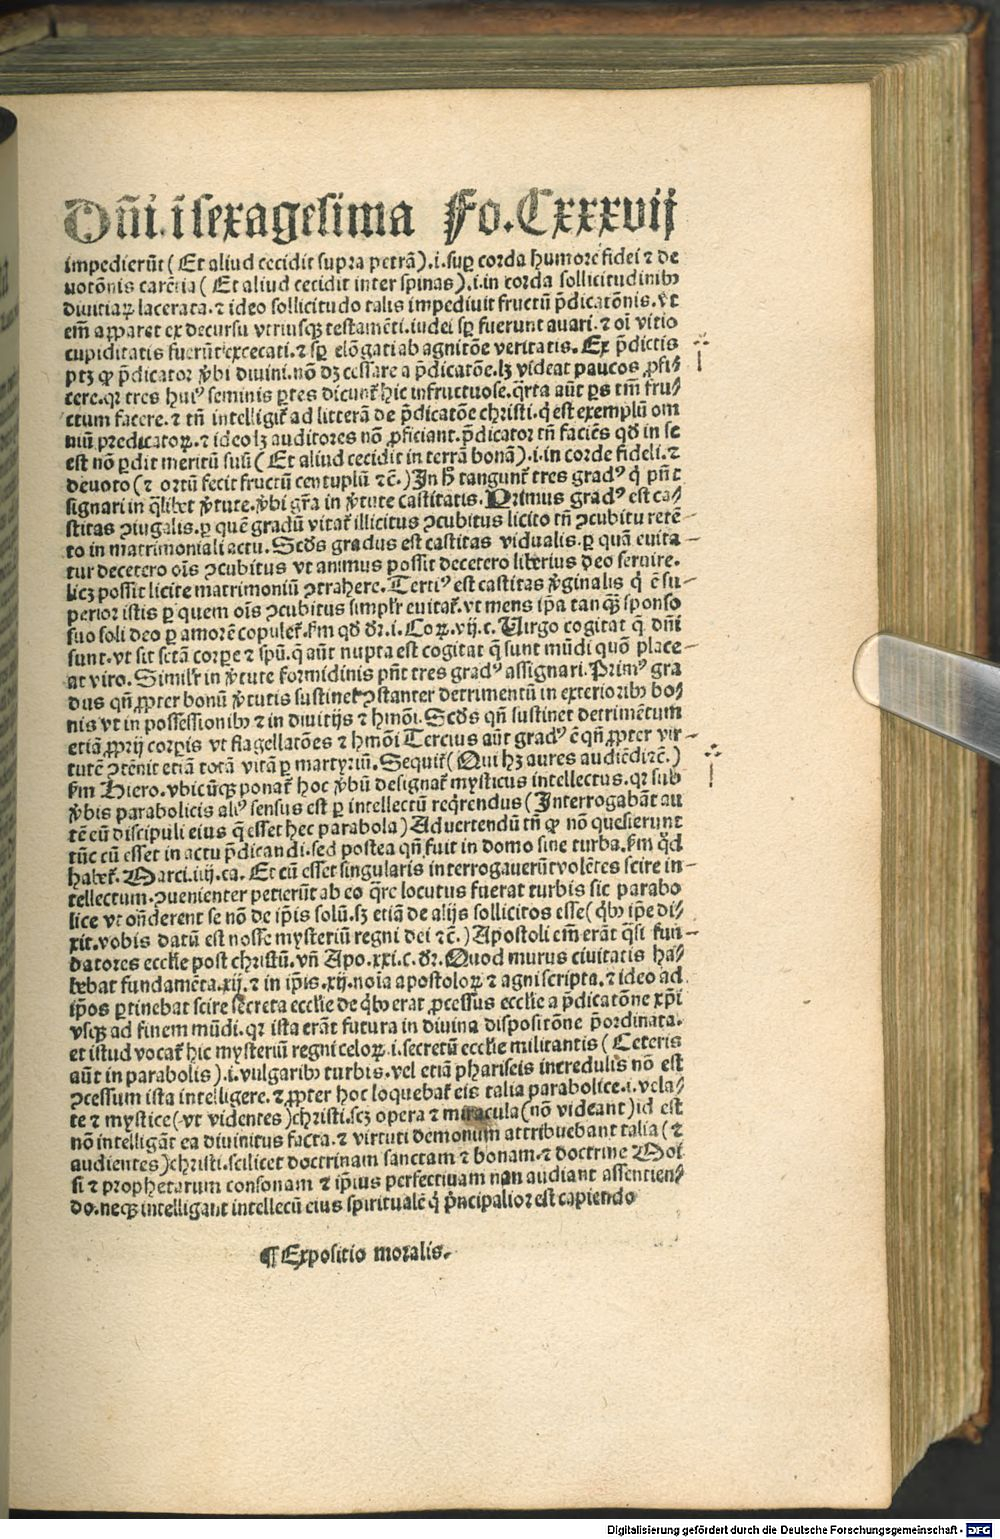 Dñi. ĩ sexagesima Fo. Cxxxvij
impedierũt (Et aliud cecidit supra petrã).i. suꝑ corda humore fidei ⁊ de
uotõnis carẽtia (Et aliud cecidit inter spinas).i. in corda sollicitudinibꝰ
diuitiaꝝ lacerata. ⁊ ideo sollicitudo talis impediuit fructũ p̃dicatõnis. vt
em̃ apparet ex decursu vtriusqꝫ testamẽti. iudei sꝑ fuerunt auari. ⁊ oĩ vitio
cupiditatis fuerũt excecati. ⁊ sꝑ elõgati ab agnitõe veritatis. Ex p̃dictis
ptꝫ ꝙ p̃dicator v̾bi diuini. nõ dꝫ cessare a p̃dicatõe. lꝫ videat paucos ꝓfi⸗
cere. qꝛ tres huiꝰ seminis ꝑtes dicunt᷑ hic infructuose. q̃rta aũt ꝑs tm̃ fru⸗
ctum facere. ⁊ tñ intelligit᷑ ad litterã de p̃dicatõe christi. q̃ est exemplũ om
niũ predicatoꝝ. ⁊ ideo lꝫ auditores nõ ꝓficiant. p̃dicator tñ faciẽs qđ in se
est nõ ꝑdit meritũ suũ (Et aliud cecidit in terrã bonã).i. in corde fideli. ⁊
deuoto (⁊ ortũ fecit fructũ centuplũ ⁊c̃.) In h̾ tangunt᷑ tres gradꝰ q̇ pñt
signari in q̃libet v̾tute. v̾bi gr̃a in v̾tute castitatis. Primus gradꝰ est ca⸗
stitas ꝯiugalis. ꝑ quẽ gradũ vitat᷑ illicitus ꝯcubitus licito tñ ꝯcubitu retẽ-
to in matrimoniali actu. Scđs gradus est castitas vidualis. ꝑ quã euita-
tur decetero oĩs ꝯcubitus vt animus possit decetero liberius deo seruire.
licꝫ possit licite matrimoniũ ꝯtrahere. Tertiꝰ est castitas v̾ginalis q̇ ẽ su-
perior istis ꝑ quem oĩs ꝯcubitus simplr̃ euitat᷑. vt mens ip̃a tanqꝫ̃ sponso
suo soli deo ꝑ amorẽ copulet᷑. ẜm qđ dr̃. i. Coꝝ. vij. c. Virgo cogitat q̃ dñi
sunt. vt sit sctã corꝑe ⁊ spũ. q̃ aũt nupta est cogitat q̃ sunt mũdi quõ place-
at viro. Similr̃ in v̾tute formidinis pñt tres gradꝰ assignari. Primꝰ gra
dus qñ ꝓpter bonũ v̾tutis sustinet᷑ ꝯstanter detrimentũ in exterioribꝰ bo⸗
nis vt in possessionibꝰ ⁊ in diuitijs ⁊ hmõi. Scđs qñ sustinet detrimẽtum
etiã ꝓprij corꝑis vt flagellatões ⁊ hmõi Tercius aũt gradꝰ ẽ qñ ꝓpter vir-
tutẽ ꝯtẽnit etiã totã vitã ꝑ martyriũ. Sequit᷑ (Qui hꝫ aures audiẽdi ⁊c̃.)
ẜm Hiero. vbicũqꝫ ponat᷑ hoc v̾bũ designat᷑ mysticus intellectus. qꝛ sub
v̾bis parabolicis aliꝰ sensus est ꝑ intellectũ reqͥrendus (Interrogabãt au
tẽ eũ discipuli eius q̃ esset hec parabola) Aduertendũ tñ ꝙ nõ quesierunt
tũc cũ esset in actu p̃dicandi. sed postea qñ fuit in domo sine turba. ẜm qđ
habet᷑. Marci. iiij. ca. Et cũ esset singularis interrogauerũt volẽtes scire in-
tellectum. ꝯuenienter petierũt ab eo q̃re locutus fuerat turbis sic parabo
lice vt oñderent se nõ de ip̃is solũ. sꝫ etiã de alijs sollicitos esse (qͥbꝰ ip̃e di⸗
xit. vobis datũ est nosse mysteriũ regni dei ⁊c̃.) Apostoli em̃ erãt q̃si fun-
datores eccl̃ie post christũ. vñ Apo. xxi. c. dr̃. Quod murus ciuitatis ha⸗
bebat fundamẽta. xij. ⁊ in ip̃is. xij. noĩa apostoloꝝ ⁊ agni scripta. ⁊ ideo ad
ip̃os ꝑtinebat scire secreta eccl̃ie de qͥbꝰ erat ꝓcessus eccl̃ie a p̃dicatõne xp̃i
vsqꝫ ad finem mũdi. qꝛ ista erãt futura in diuina dispositõne p̃ordinata.
et istud vocat᷑ hic mysteriũ regni celoꝝ .i. secretũ eccl̃ie militantis (Ceteris
aũt in parabolis).i. vulgaribꝰ turbis. vel etiã phariseis incredulis nõ est
ꝯcessum ista intelligere. ⁊ ꝓpter hoc loquebat᷑ eis talia parabolice .i. vela⸗
te ⁊ mystice (vt videntes) christi. scꝫ opera ⁊ miracula (nõ videant) id est
nõ intelligãt ea diuinitus facta. ⁊ virtuti demonum attribuebant talia (⁊
audientes) christi. scilicet doctrinam sanctam ⁊ bonam. ⁊ doctrine Moi
si ⁊ prophetarum consonam ⁊ ip̃ius perfectiuam non audiant assentien⸗
do. neqꝫ intelligant intellectũ eius spiritualẽ q̇ pͥncipalior est capiendo
¶ Expositio moralis.
Digitalisierung gefördert durch die Deutsche Forschungsgemeinschaft - DFG